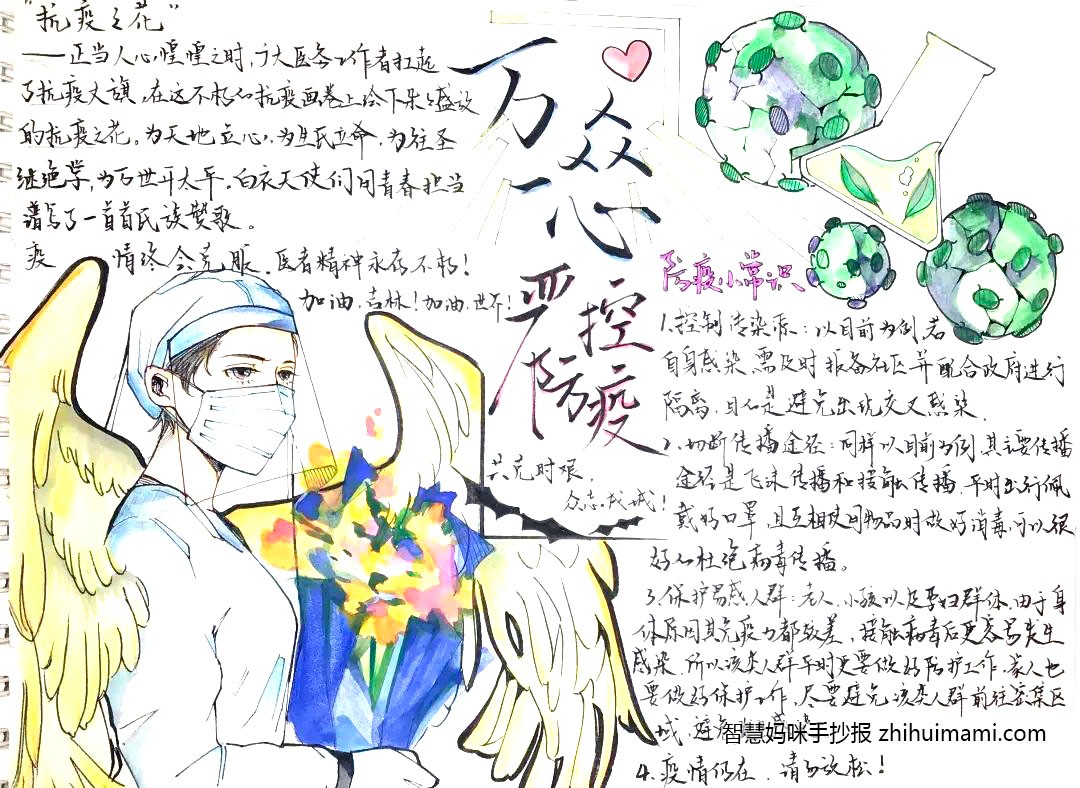 "抗疫之花"
——正当人心惶惶之时,广大医务工作者扛起
了抗疫大旗,在这不朽的抗疫画卷上绘下朵朵盛放
的抗疫之花。为天地立心,为生民立命,为往圣
继绝学,为万世开太平。白衣天使们用青春担当
谱写了一首首民族赞歌。
疫情终会克服,医者精神永存不朽!
加油,吉林!加油,世界!
万众
一心
严控
防疫
共克时艰,
众志成城!
防疫小常识
1.控制传染源:以目前为例,若
自身感染需及时报备社区并配合政府进行
隔离,目的是避免出现交叉感染.
2.切断传播途径:同样以目前为例,其主要传播
途径是飞沫传播和接触传播,平时出行佩
戴好口罩,且互相使用物品时做好消毒,可以很
好的杜绝病毒传播。
3.保护易感人群:老人,小孩以及孕妇群体,由于身
体原因其免疫力都较差,接触病毒后更容易发生
感染,所以该类人群平时更要做好防护工作,家人也
要做好保护工作,尽量避免该类人群前往密集区
域,避免
4.疫情仍在,请勿放松!
智慧妈咪手抄报 zhihuimami.com